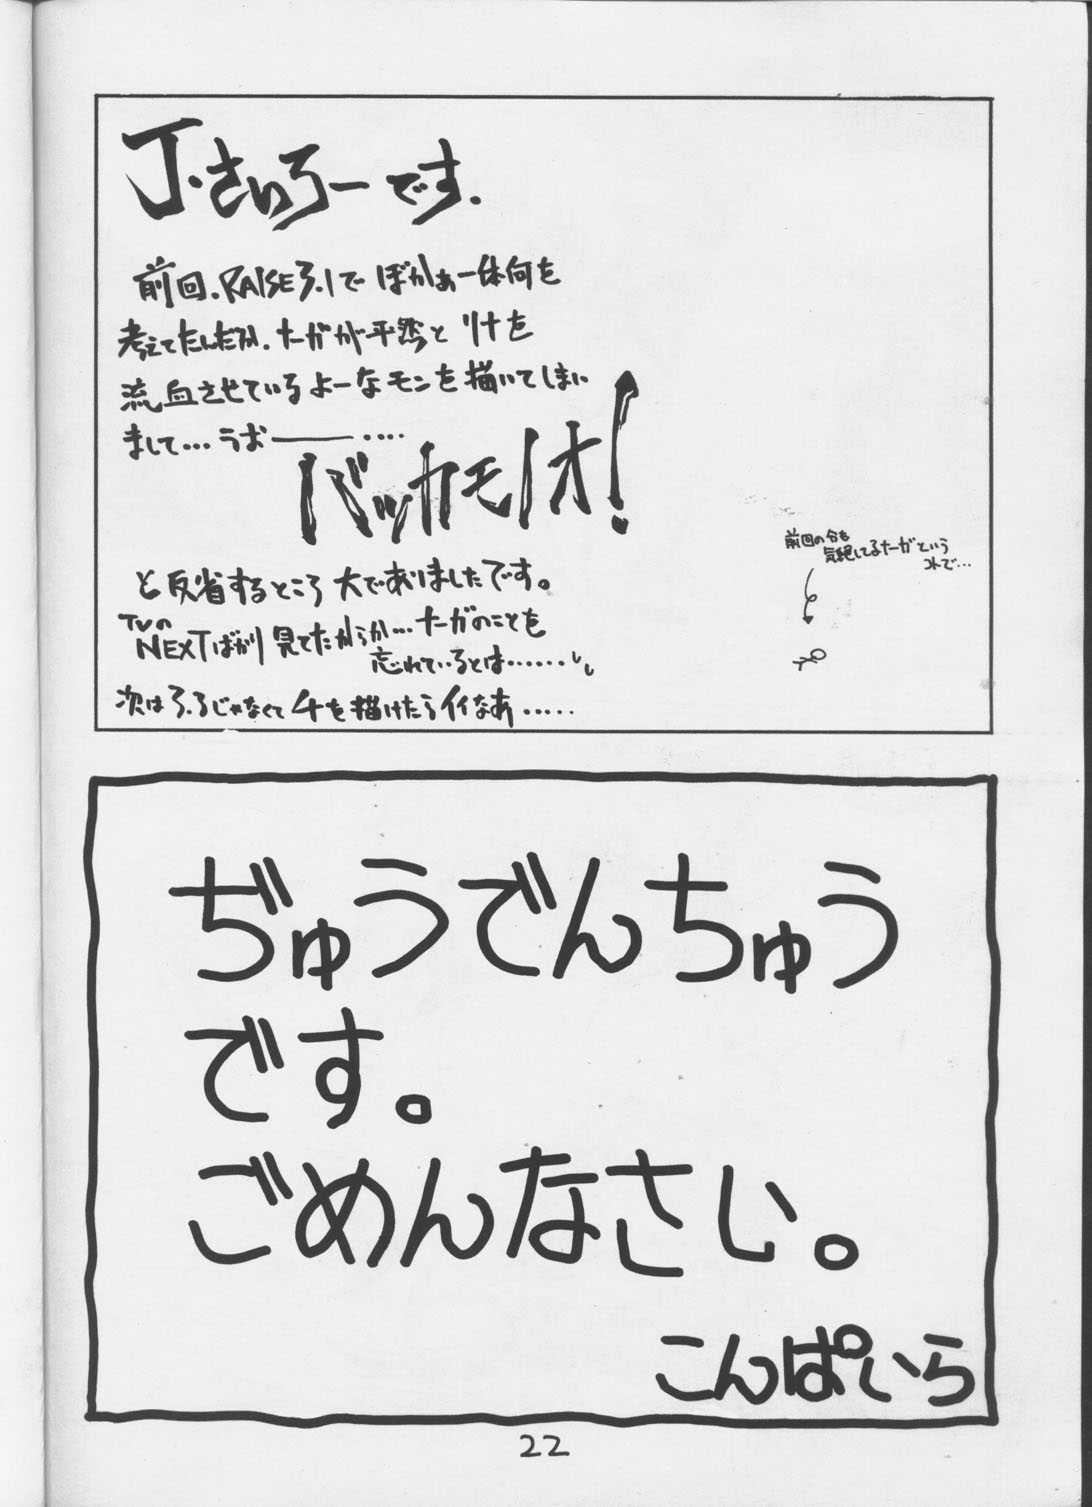 J・さいろーです.
前回.RAISE3.1で ぼかぁ一体何を
考えてたんだか.ナーガが平然と リナを
流血させているよーなモンを描いてしまい
まして…うお――‥‥
バッカモノオ!
と反省するところ大でありましたです。
TVの
NEXTばかり見てたからか…ナーガのことを
忘れているとは……
次は3.3じゃなくて4を描けたらイイなあ……
前回の分も
気絶してるナーガという
コトで…
ぢゅうでんちゅう
です。
ごめんなさい。
こんぱいら
22